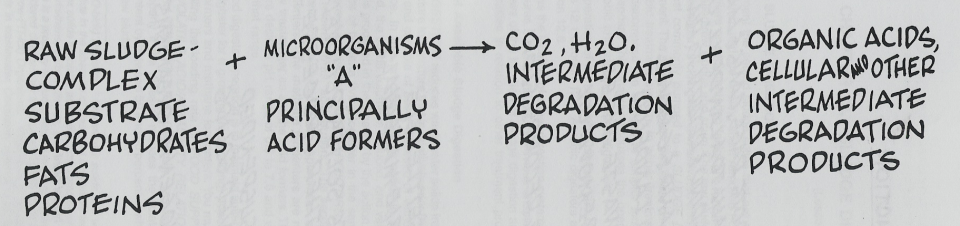 RAW SLUDGE-
COMPLEX
SUBSTRATE
CARBOHYDRATES
FATS
PROTEINS
+
MICROORGANISMS
"A"
PRINCIPALLY
ACID FORMERS
→
CO2, H2O.
INTERMEDIATE
DEGRADATION
PRODUCTS
+
ORGANIC ACIDS,
CELLULAR AND OTHER
INTERMEDIATE
DEGRADATION
PRODUCTS